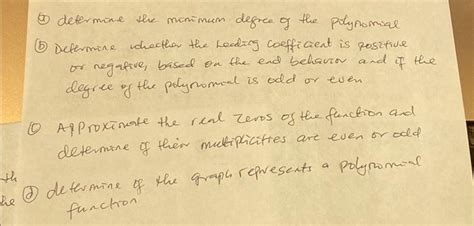 ⓐ determine the minimum degree of the polynomial
ⓑ Determine whether the Leading coefficient is positive
or negative, based on the end behavior and if the
degree of the polynomial is odd or even
ⓒ Approximate the real zeros of the function and
determine if their multiplicities are even or odd
ⓓ determine if the graph represents a polynomial
function